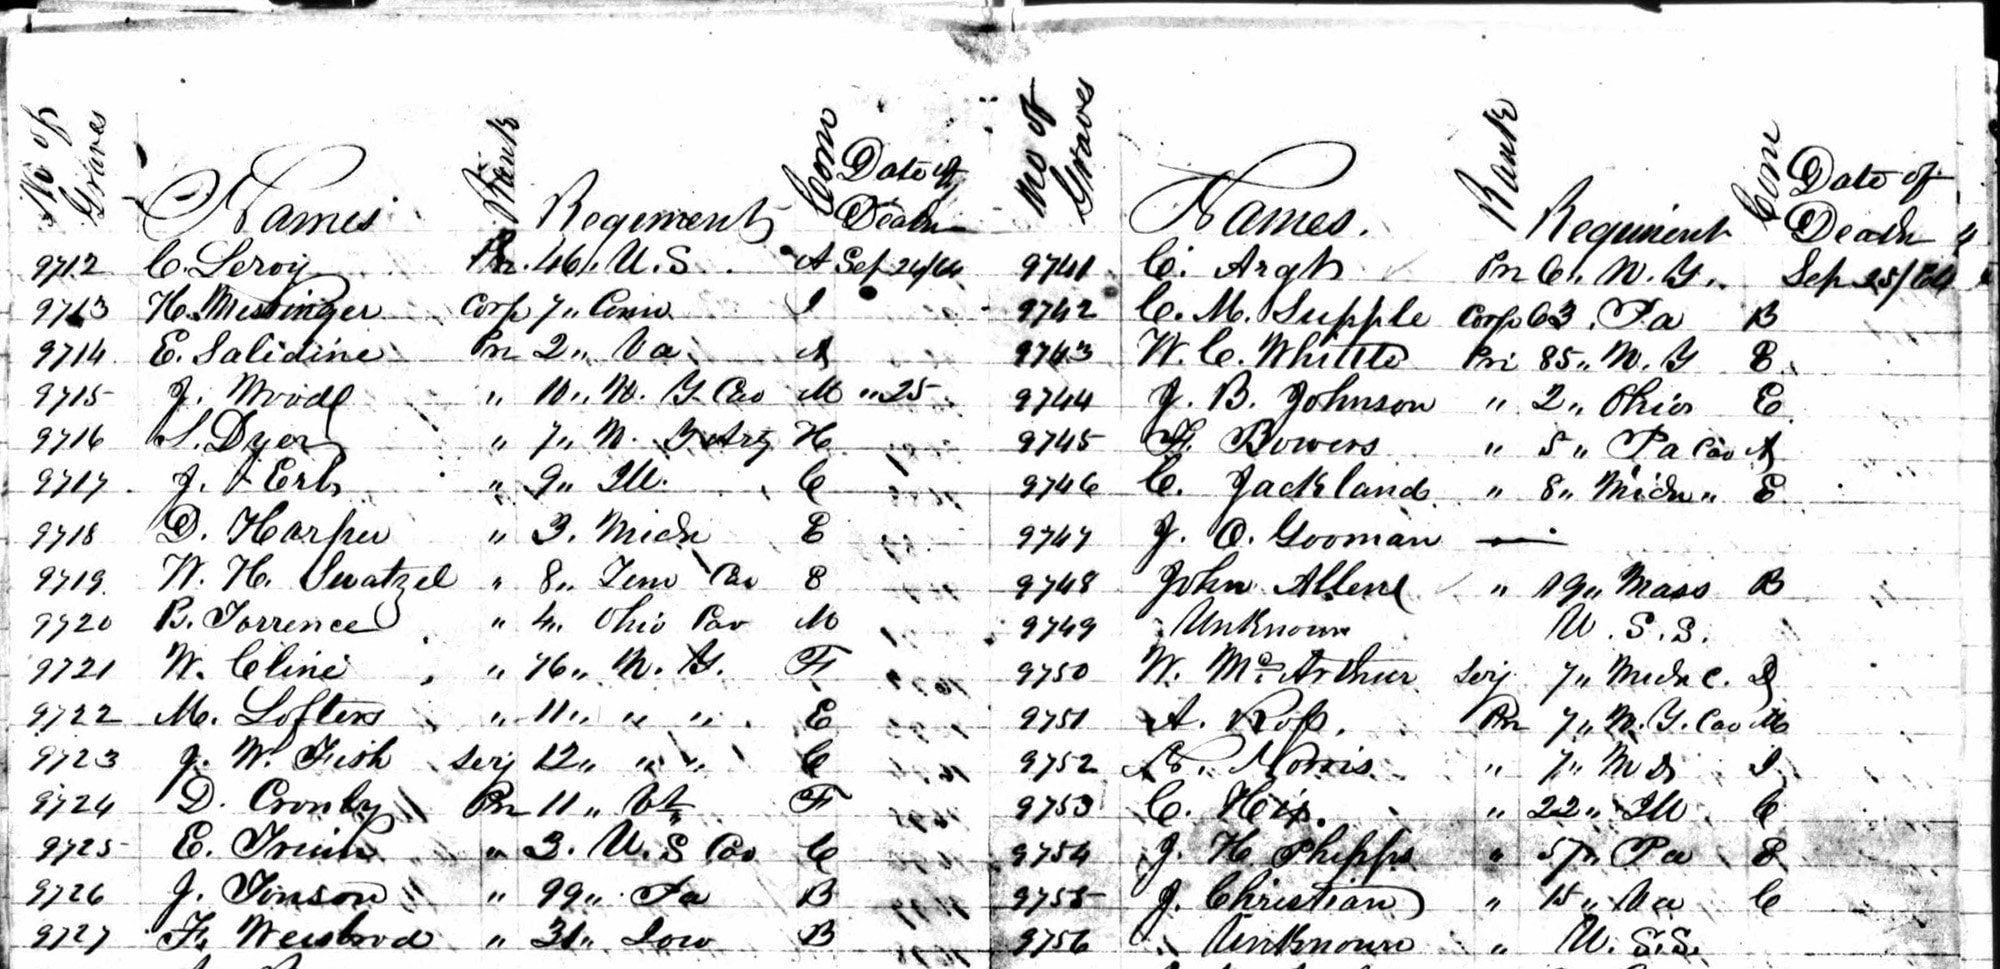 No of Graves Names Rank Regiment Com Date of Death
9712 C. Leroy Pri. 46 " U.S. A Sep 24/64
9713 H. Messinger Corp 7 " Conn I
9714 E. Salidine Pri 2 " Va A
9715 J. Wood " 10 " N. Y. Cav M " 25
9716 S. Dyer " 7 " N. Y Arty H
9717 J. Erb " 9 " Ill. C
9718 D. Harper " 3. Mich E
9719 W. H. Swatzel " 8 " Tenn Cav E
9720 B. Torrence " 4 " Ohio Cav M
9721 W. Cline " 76 " N. Y. F
9722 M. Loftens " 11 " " " E
9723 J. W. Fish Serj 12 " " " C
9724 D. Cronby Pri 11 " Vt F
9725 E. " 3. U.S Cav C
9726 J. Tonson " 99 " Pa B
9727 F. Weisbrod " 31 " Iow B
No of Graves Names. Rank Regiment Com Date of Death
9741 C. Argt Pri 6 " N. Y. Sep 25/64
9742 C. M. Supple Corp 63. Pa B
9743 W. C. Whittle Pri 85 " N. Y E
9744 J. B. Johnson " 2 " Ohio E
9745 F. Bowers " 5 " Pa Cav A
9746 C. Jackland " 8 " Mich " E
9747 J. O. Gooman —
9748 John Allen " 19 " Mass B
9749 Unknown U. S. S.
9750 W. Mc. Arthur Serj 7 " Mich C. D
9751 A. Ross. Pri 7 " N. Y. Cav M
9752 Norris " 7 " Md I
9753 C. Hix. " 22 " Ill C
9754 J. H Phipps " 57 " Pa E
9755 J. Christian " 15 " Va C
9756 Unknown " U. S.S.